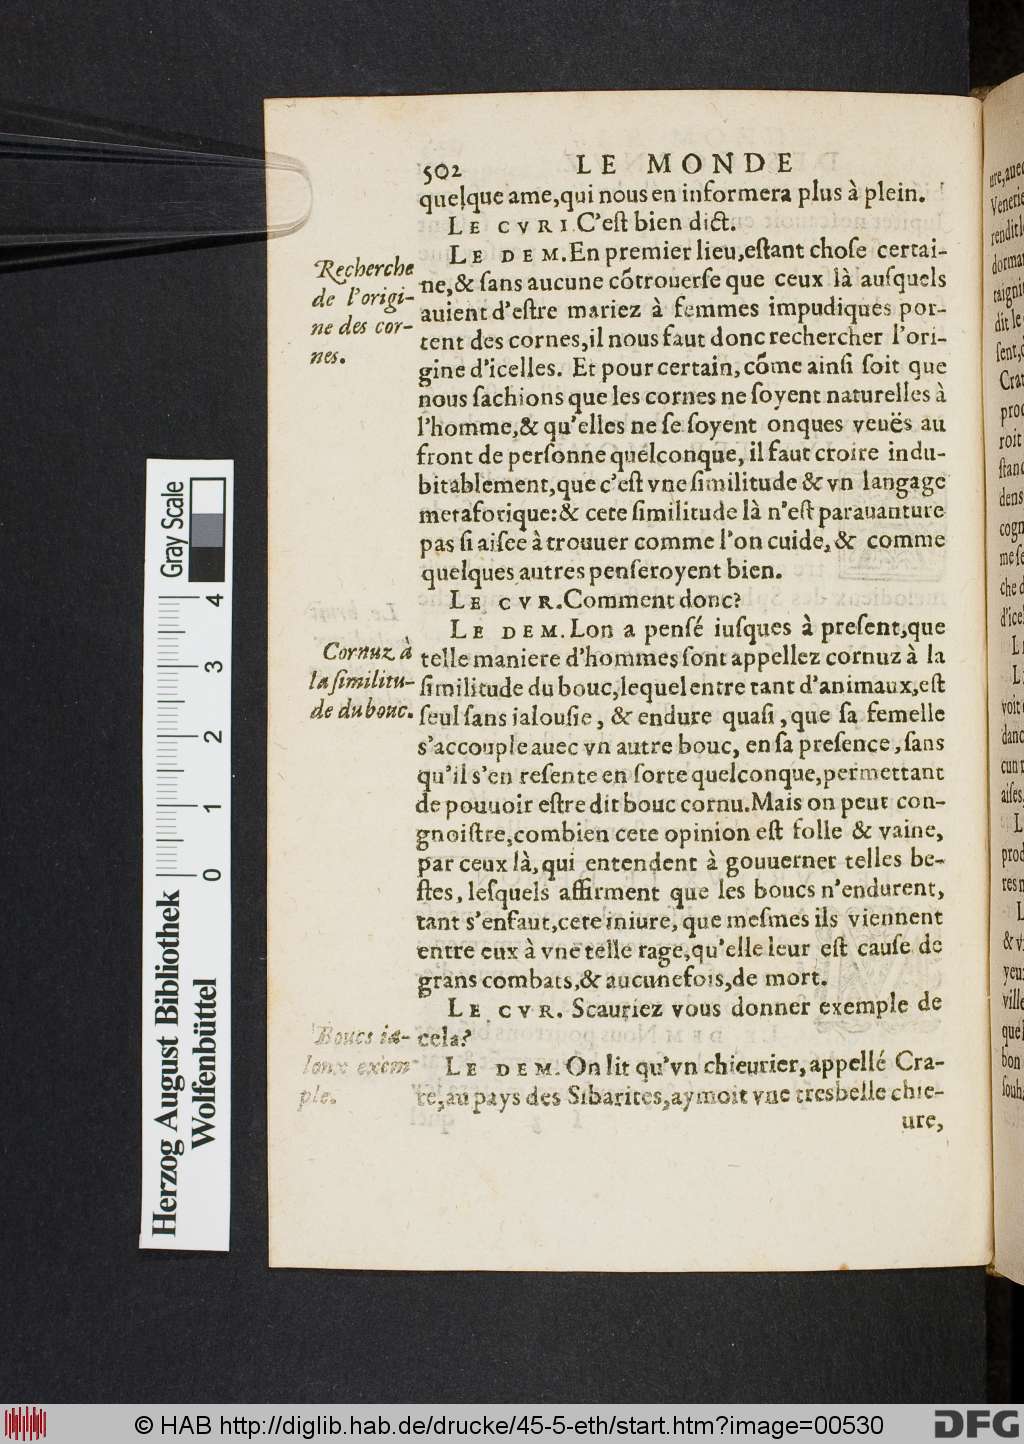 502 LE MONDE
quelque ame,qui nous en informera plus à plein.
LE CVRI. C'eſt bien dict.
LE DEM. En premier lieu,eſtant choſe certai-
ne,& ſans aucune cõtrouerſe que ceux là auſquels
auient d'eſtre mariez à femmes impudiques por-
tent des cornes,il nous faut donc rechercher l'ori-
gine d'icelles. Et pour certain, cõme ainſi ſoit que
nous ſachions que les cornes ne ſoyent naturelles à
l'homme,& qu'elles ne ſe ſoyent onques veuës au
front de perſonne quelconque, il faut croire indu-
bitablement,que c'eſt vne ſimilitude & vn langage
metaforique:& cete ſimilitude là n'eſt parauanture
pas ſi aiſee à trouuer comme l'on cuide, & comme
quelques autres penſeroyent bien.
LE CVR. Comment donc?
LE DEM. Lon a penſé iuſques à preſent,que
telle maniere d'hommes ſont appellez cornuz à la
ſimilitude du bouc,lequel entre tant d'animaux,eſt
ſeul ſans ialouſie, & endure quaſi, que ſa femelle
s'accouple auec vn autre bouc, en ſa preſence, ſans
qu'il s'en reſente en ſorte quelconque,permettant
de pouuoir eſtre dit bouc cornu. Mais on peut con-
gnoiſtre,combien cete opinion eſt folle & vaine,
par ceux là, qui entendent à gouuerner telles be-
ſtes, leſquels affirment que les boucs n'endurent,
tant s'enfaut,cete iniure, que meſmes ils viennent
entre eux à vne telle rage,qu'elle leur eſt cauſe de
grans combats,& aucunefois,de mort.
LE CVR. Scauriez vous donner exemple de
cela?
LE DEM. On lit qu'vn chieurier, appellé Cra-
te,au pays des Sibarites,aymoit vne tresbelle chie-
ure,
Recherche
de l'origi-
ne des cor-
nes.
Cornuz à
la ſimilitu-
de du bouc.
Boucs ia-
loux exem
ple.
Gray Scale
0 1 2 3 4
Herzog August Bibliothek
Wolfenbüttel
© HAB http://diglib.hab.de/drucke/45-5-eth/start.htm?image=00530
DFG